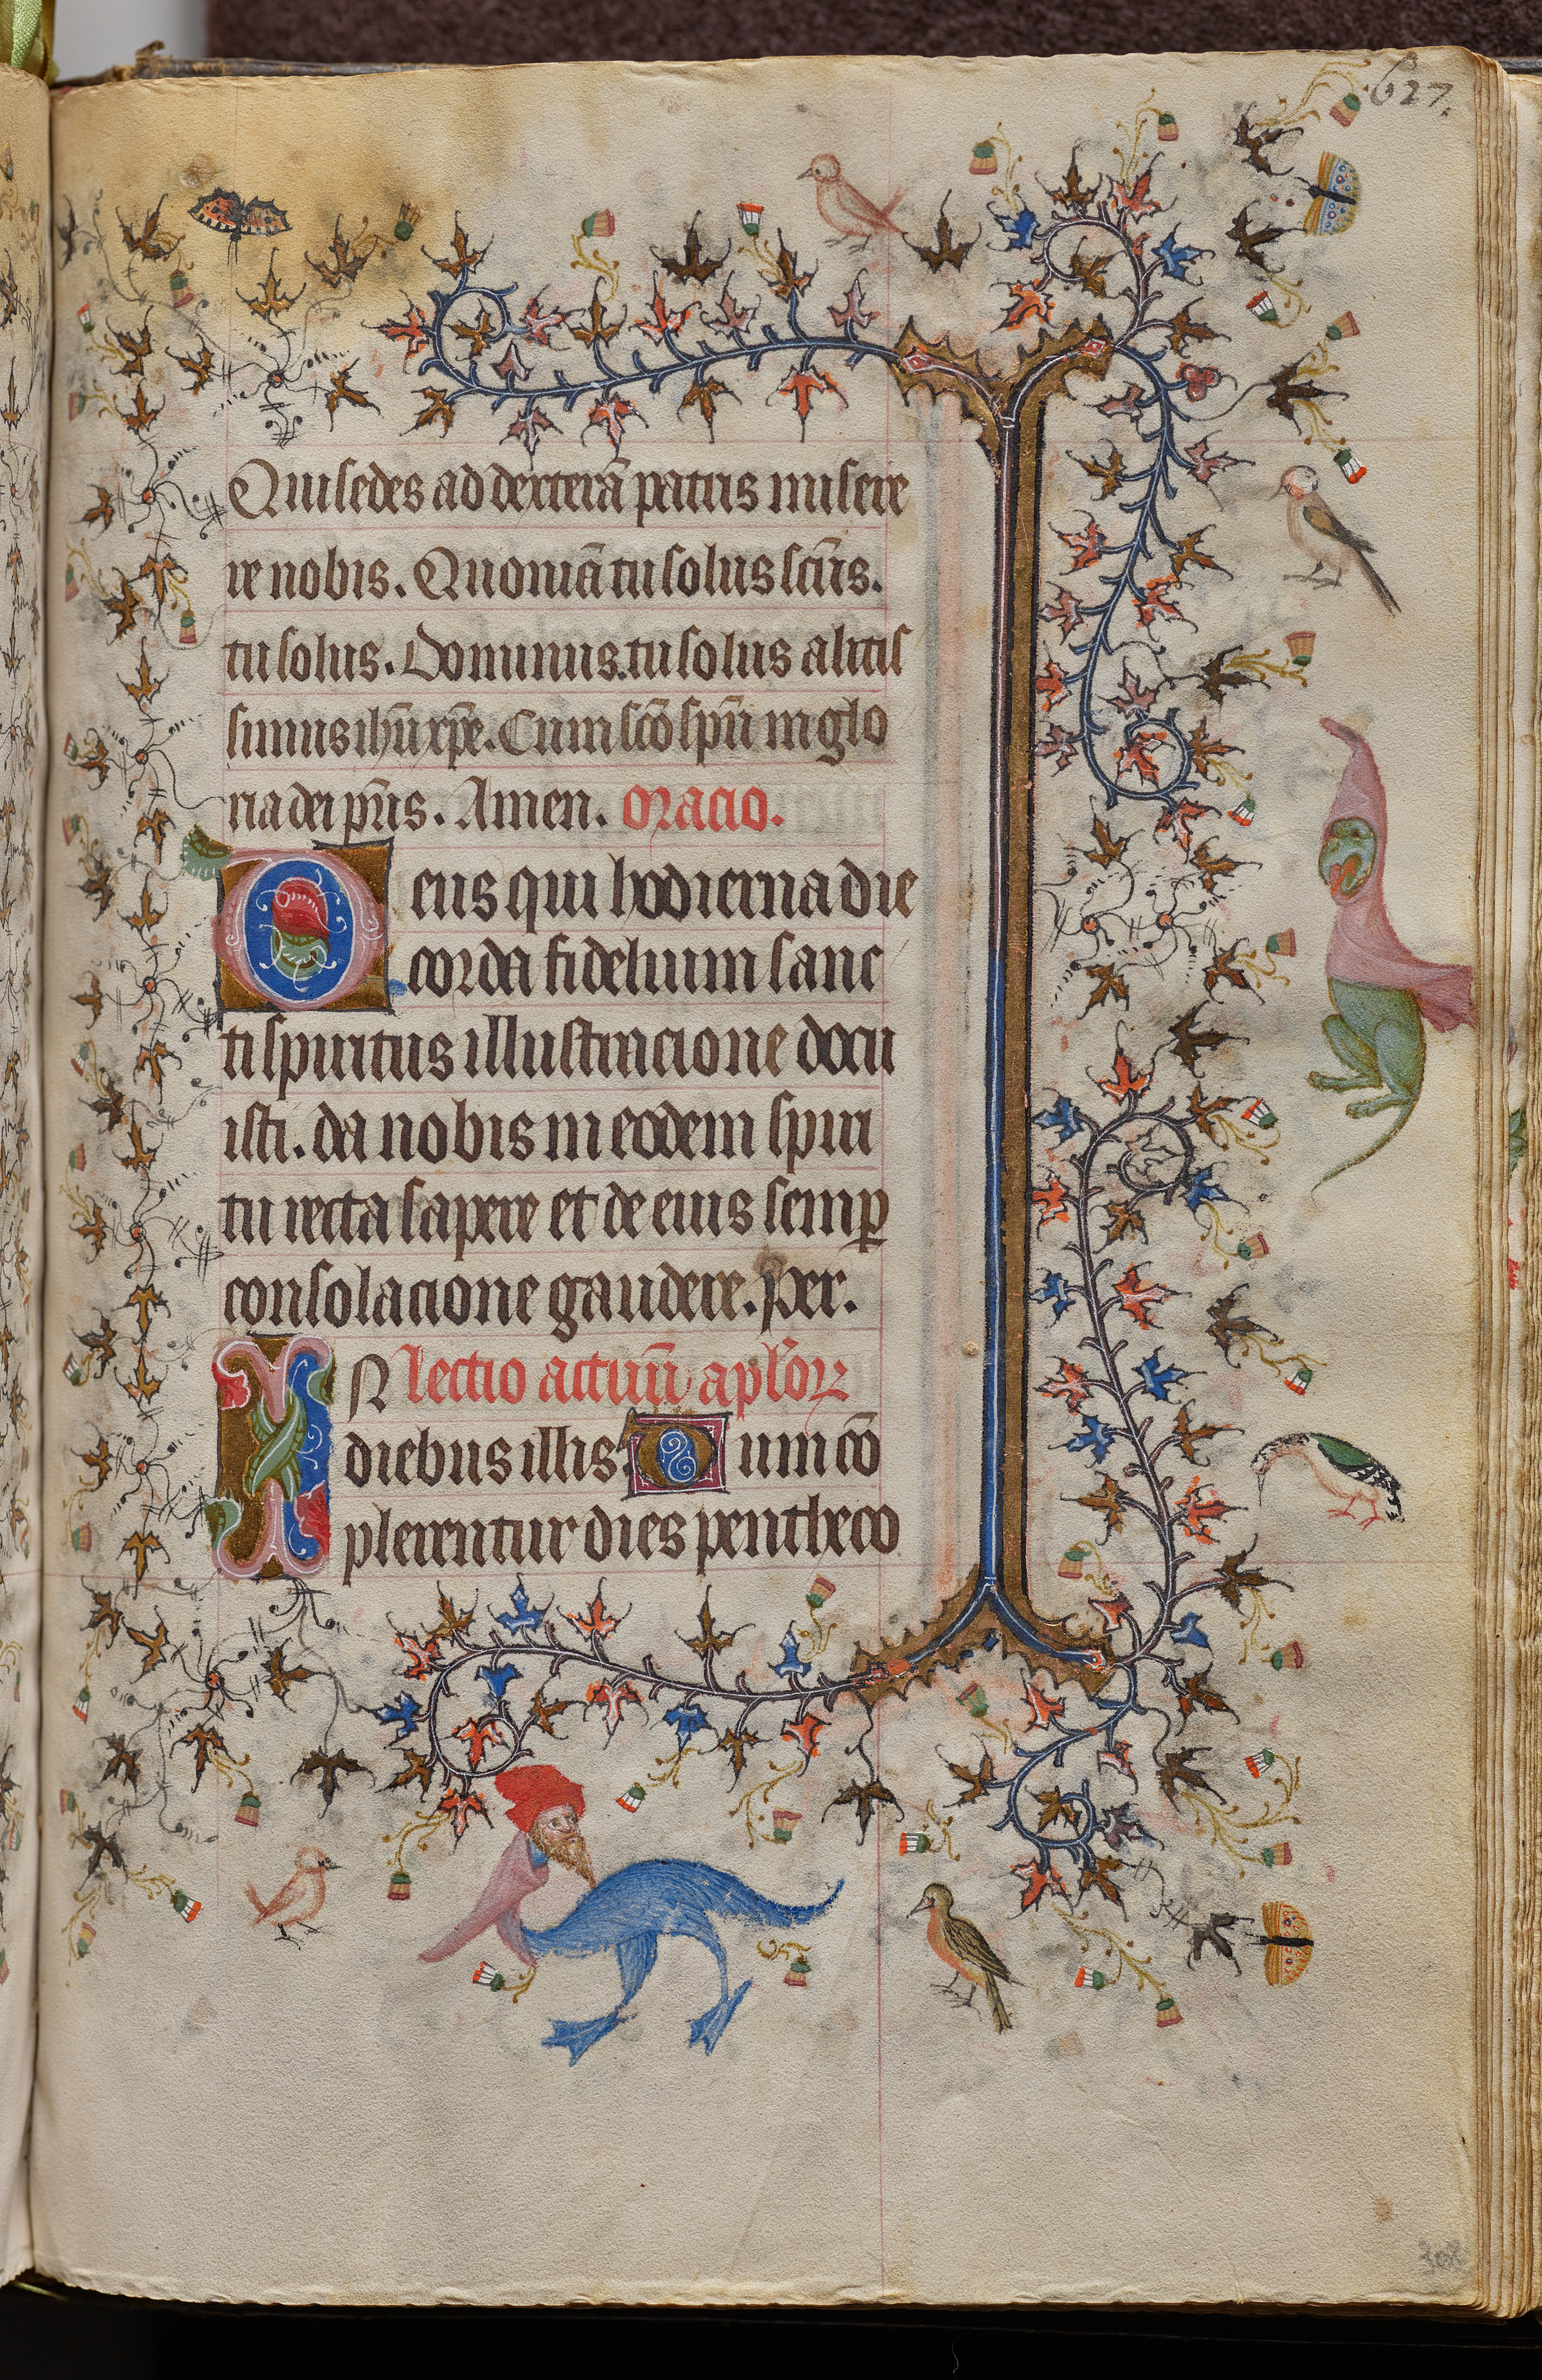 627.
Qui sedes ad dexterā patris misere
re nobis. Quoniā tu solus scūs.
tu solus. Dominus. tu solus altis
simus ihū xp̄e. Cum scō sp̄u in glo
ria dei pr̄is. Amen. oracio.
Deus qui hodierna die
corda fidelium sanc
ti spiritus illustracione docu
isti. da nobis in eodem spiri
tu recta sapere et de eius semꝑ
consolacione gaudere. Per.
IN lectio actuū aplōꝝ
diebus illis. Dum cō
plerentur dies pentheco
308